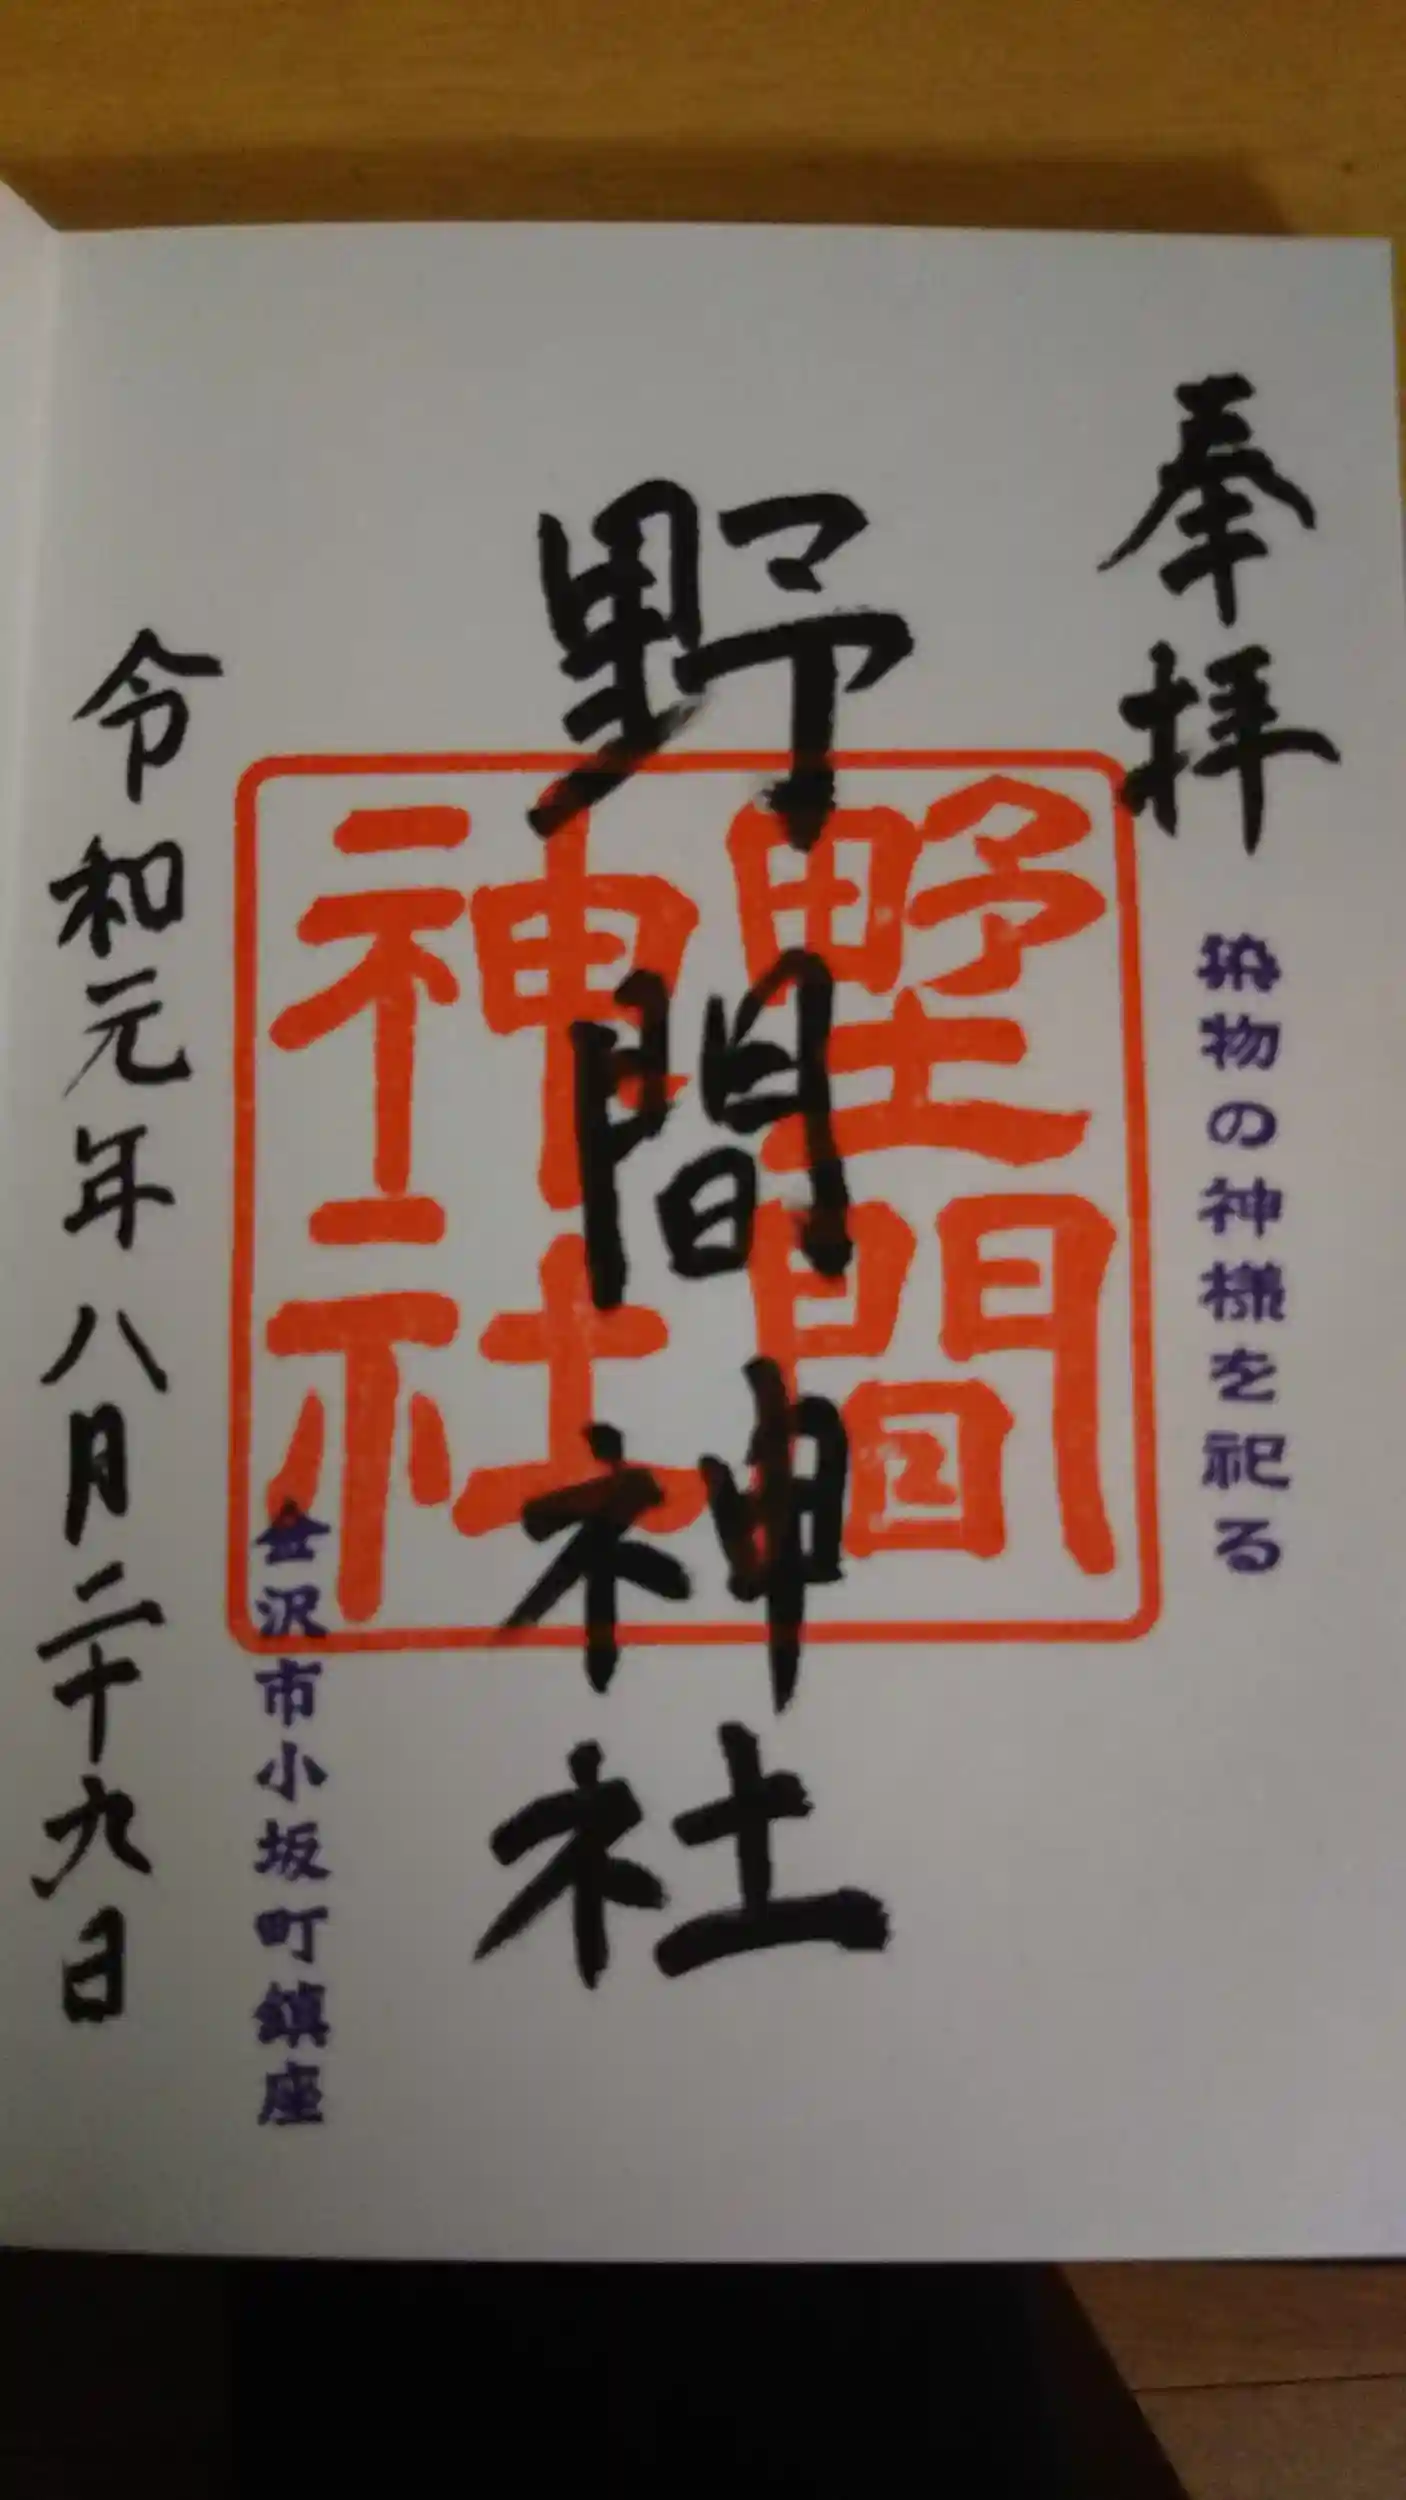 奉拝
染物の神様を祀る
野間神社
野間
神社
金沢市小坂町鎮座
令和元年八月二十九日